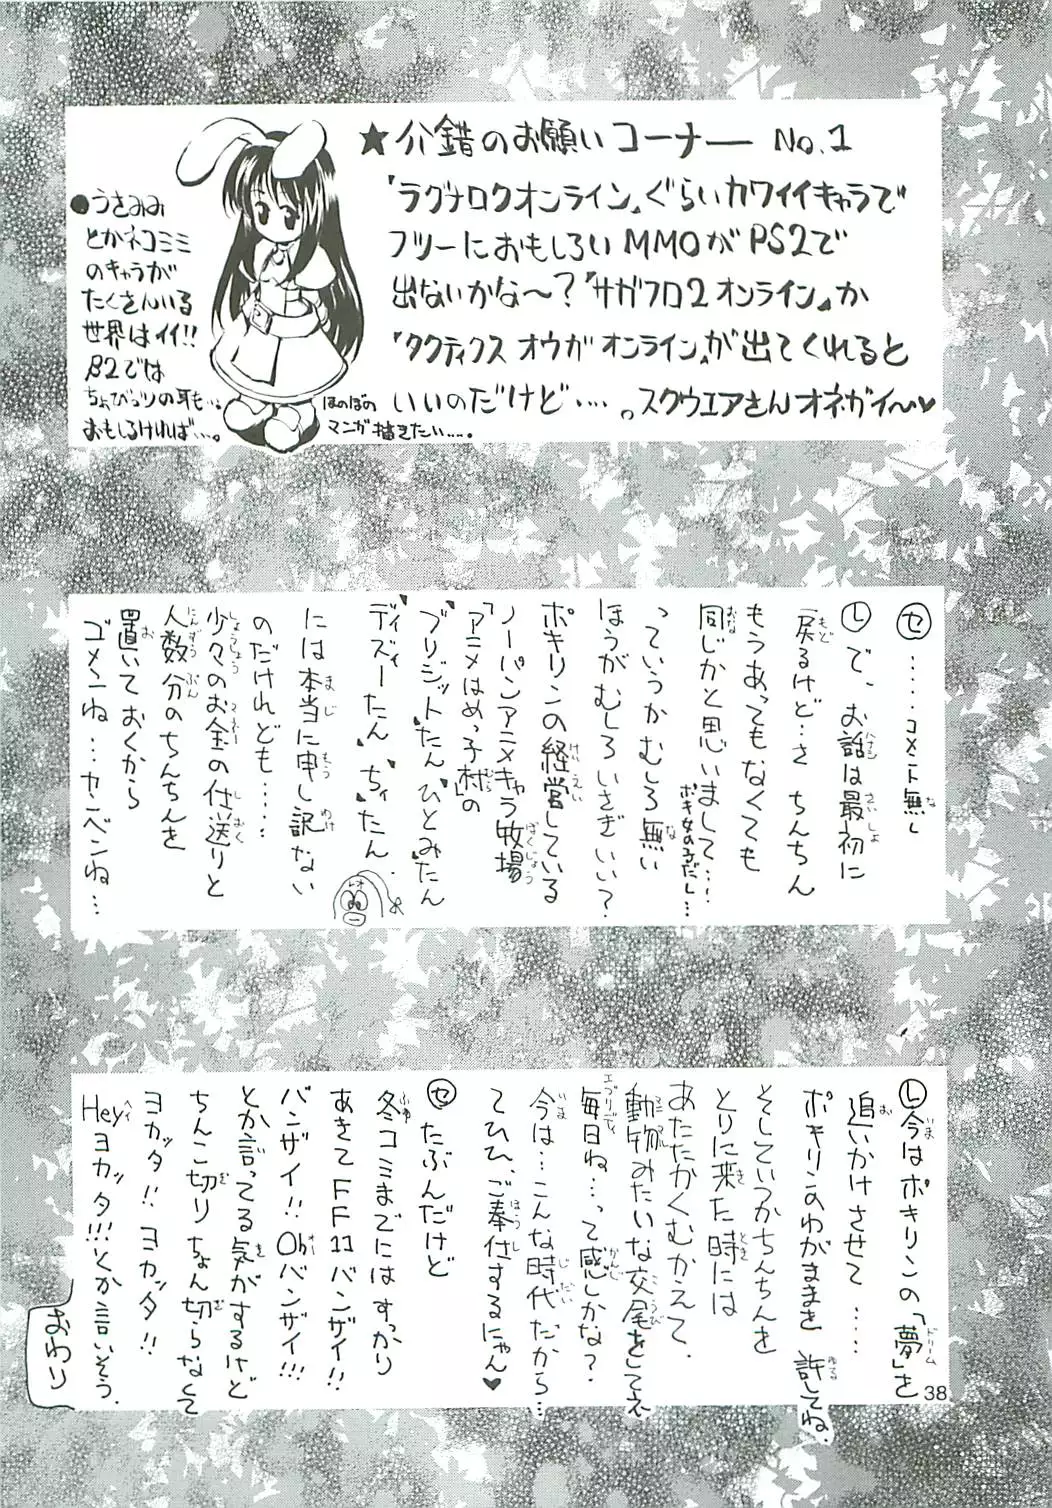 ★介錯のお願いコーナー No.1
『ラグナロクオンライン』ぐらいカワイイキャラで
フツーにおもしろいMMOがPS2で
出ないかな〜?『サガフロ2オンライン』か
『タクティクスオウガオンライン』が出てくれると
いいのだけど‥‥。スクウエアさんオネガイ〜♥
●うさみみ
とかネコミミ
のキャラが
たくさんいる
世界はイイ!!
β2では
ちょびっツの耳も…。
おもしろければ…。
ほのぼの
マンガ描きたい……。
セ ……コメント無し
レ で、お話は最初に
戻るけど…さ ちんちん
もうあってもなくても
同じかと思いまして‥‥
ポキ女の子だし…
っていうかむしろ無い
ほうがむしろいさぎいい?
ポキリンの経営している
ノーパンアニメキャラ牧場
「アニメはめっ子村」の
"ブリジット"たん"ひとみ"たん
"ディズー"たん"ちぃ"たん
には本当に申し訳ない
のだけれども……
少々のお金の仕送りと
人数分のちんちんを
置いておくから
ゴメーンね…カンベンね…
レ 今はポキリンの「夢」を
追いかけさせて……
ポキリンのわがままを許してね.
そしていつかちんちんを
とりに来た時には
あたたかくむかえて、
動物みたいな交尾をしてえ
毎日ね…って感じかな?
今は…こんな時代だから…
てひひ、ご奉仕するにゃん♥
セ たぶんだけど
冬コミまでにはすっかり
あきてFF11バンザイ!!
バンザイ!!Ohバンザイ!!!
とか言ってる気がするけど
ちんこ切りちょん切らなくて
ヨカッタ!!ヨカッタ!!
Heyヨカッタ!!!とか言いそう.
おわり
38